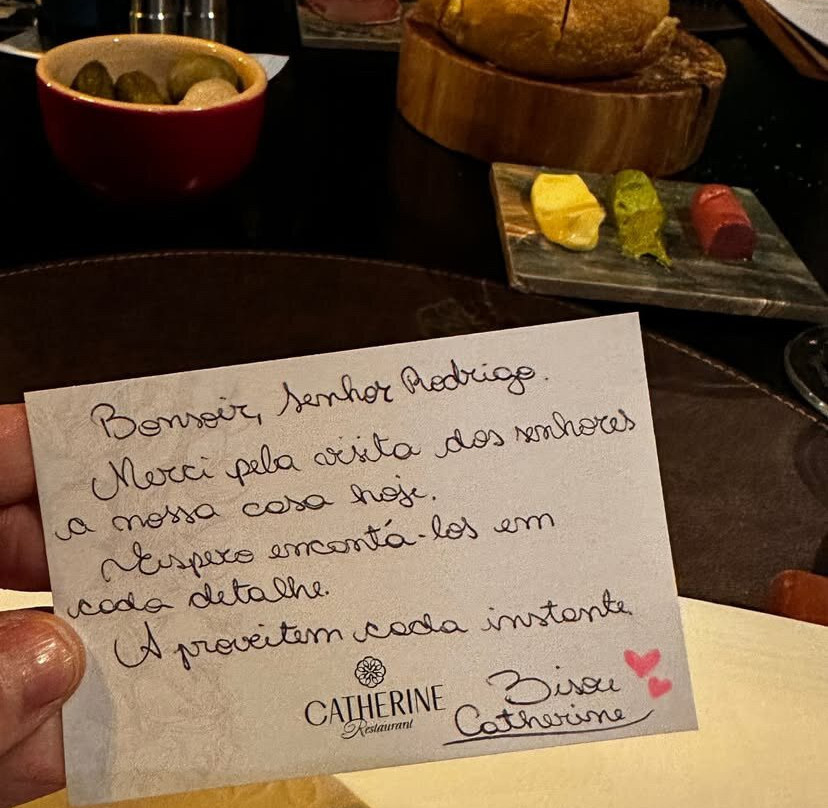 Bonsoir, Senhor Rodrigo.
Merci pela visita dos senhores
a nossa casa hoje.
Espero encantá-los em
cada detalhe.
Aproveitem cada instante
CATHERINE
Restaurant
Bisou
Catherine